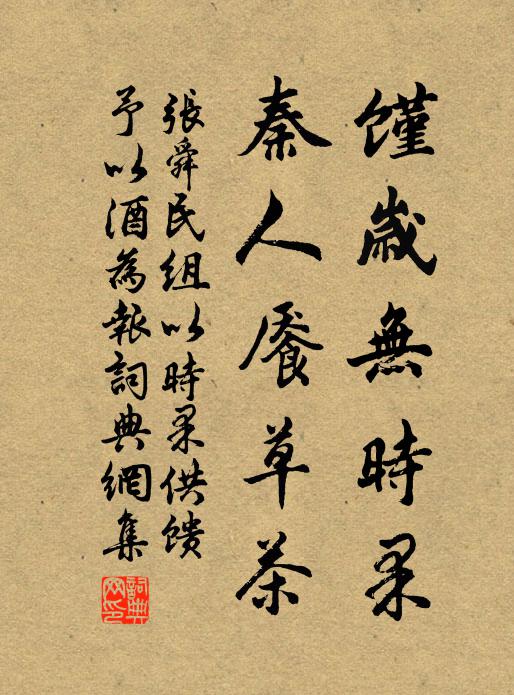 饉歲無時果
秦人饜草茶
張舜民組以時果供饋
予以酒為報詞典網集
詞典網印